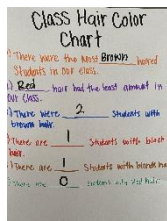 Class Hair Color
Chart
There were the most Brown haired
Students in our class.
Red hair had the least amount in
Our Class.
There were 2 Students with
brown hair.
There are 1 Students with black
hair.
There are 1 Students with blonde
0 Students with red hair.